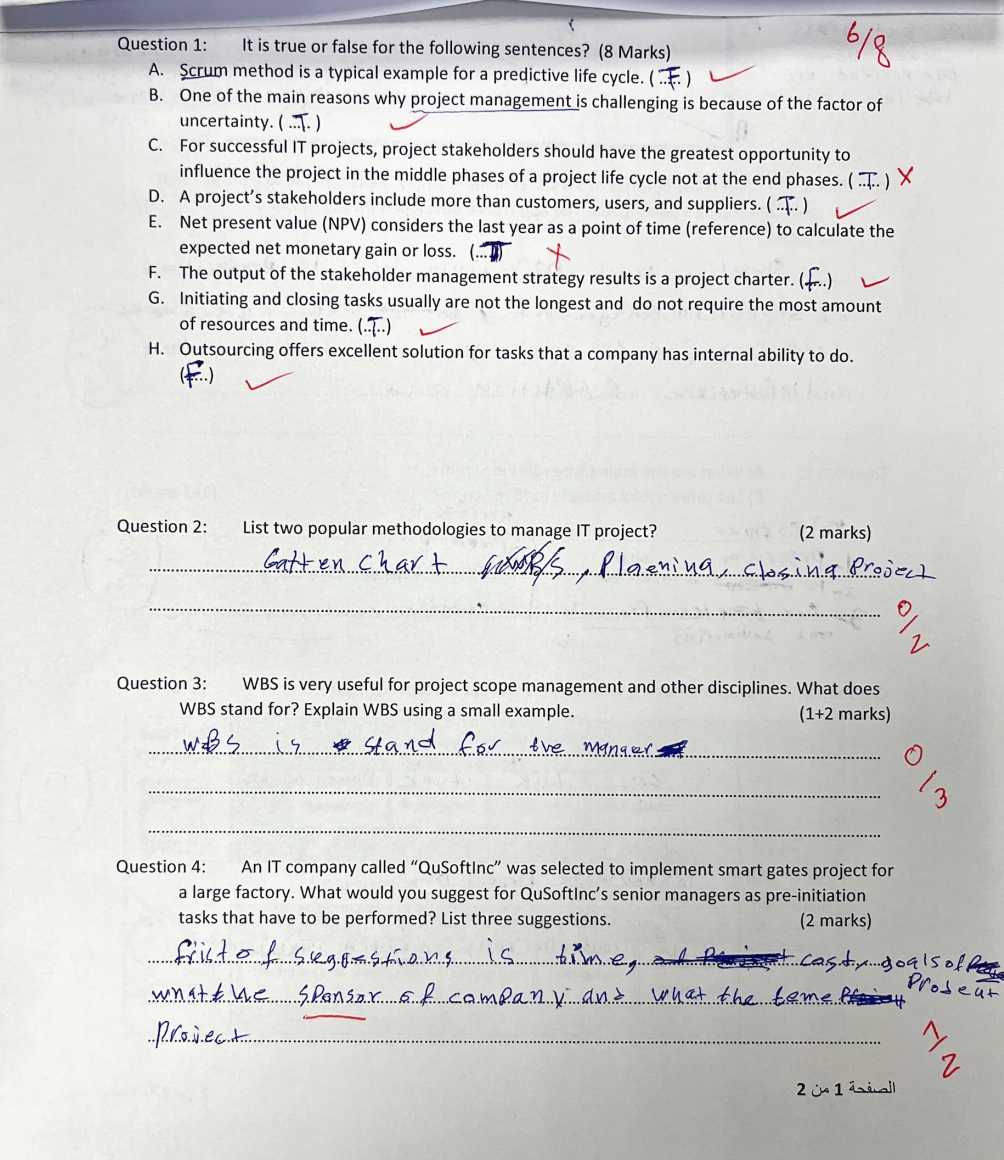 Question 1: It is true or false for the following sentences? (8 Marks) 6/8
A. Scrum method is a typical example for a predictive life cycle. (..F.)
B. One of the main reasons why project management is challenging is because of the factor of
uncertainty. (...T.)
C. For successful IT projects, project stakeholders should have the greatest opportunity to
influence the project in the middle phases of a project life cycle not at the end phases. (..T..) X
D. A project's stakeholders include more than customers, users, and suppliers. (..T..)
E. Net present value (NPV) considers the last year as a point of time (reference) to calculate the
expected net monetary gain or loss. (...T) X
F. The output of the stakeholder management strategy results is a project charter. (F..)
G. Initiating and closing tasks usually are not the longest and do not require the most amount
of resources and time. (..T..)
H. Outsourcing offers excellent solution for tasks that a company has internal ability to do.
(F...)
Question 2: List two popular methodologies to manage IT project? (2 marks)
Gatten chart , Plaening, closing Project
0/2
Question 3: WBS is very useful for project scope management and other disciplines. What does
WBS stand for? Explain WBS using a small example. (1+2 marks)
WBS is stand for the manger
0/3
Question 4: An IT company called "QuSoftInc" was selected to implement smart gates project for
a large factory. What would you suggest for QuSoftInc's senior managers as pre-initiation
tasks that have to be performed? List three suggestions. (2 marks)
frist of seggestions is time, cost, goals of
what the sponsor of company and what the teme
Project
1/2
الصفحة 1 من 2